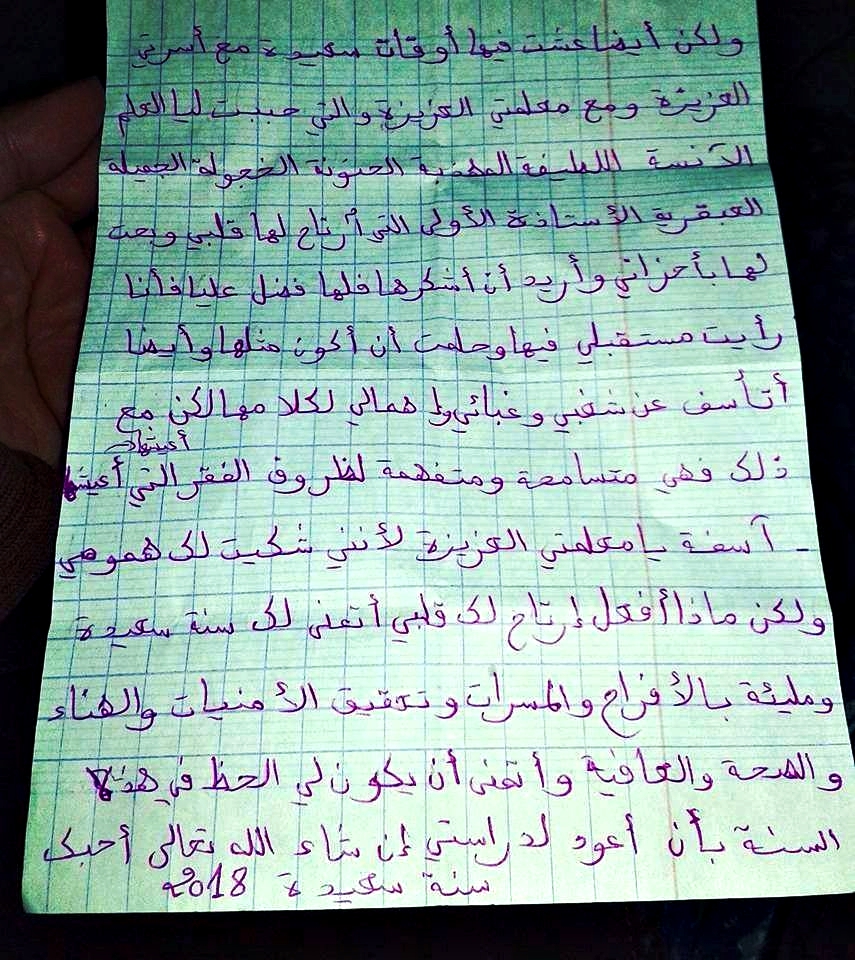 ولكن أيضا عشت فيها أوقات سعيدة مع أسرتي
العزيزة ومع معلمتي العزيزة والتي حببت ليا العلم
الآنسة اللطيفة المهذبة الحنونة الخجولة الجميلة
العبقرية الأستاذة الأولى التي أرتاح لها قلبي وبحت
لها بأحزاني وأريد أن أشكرها فلها فضل عليا فأنا
رأيت مستقبلي فيها وحلمت أن أكون مثلها وأيضا
أتأسف عن شغبي وغبائي وإهمالي لكلامها لكن مع
أعيشها
ذلك فهي متسامحة ومتفهمة لظروف الفقر التي أعيشها
- آسفة يا معلمتي العزيزة لأنني شكيت لك همومي
ولكن ماذا أفعل إرتاح لك قلبي أتمنى لك سنة سعيدة
ومليئة بالأفراح والمسرات وتحقيق الأمنيات والهناء
والصحة والعافية وأتمنى أن يكون لي الحظ في هذه
السنة بأن أعود لدراستي إن شاء الله تعالى أحبك
سنة سعيدة 2018